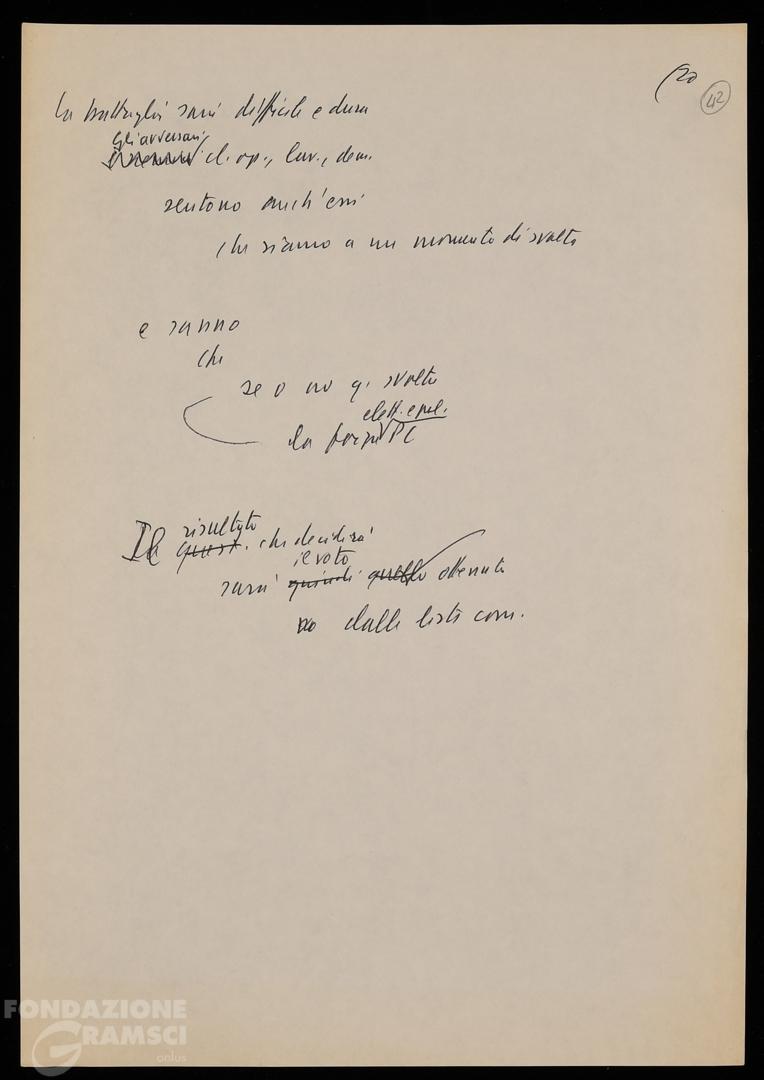 (20
42
La battaglia sarà difficile e dura
Gli avversari
cl. op., lav., dem.
sentono anch'essi
che siamo a un momento di svolta
e sanno
che
se o no q. svolta
elett. e pol.
la forza PC
risultato
Il quest. che decidirà
il voto
sarà quindi quello ottenuto
dalle liste com.
FONDAZIONE
GRAMSCI
onlus